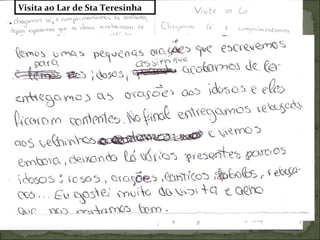 Visita ao Lar de Sta Teresinha
Visita ao Lar
Chegamos lá, e cumprimentamos as senhoras,
Chegamos lá e cumprimentamos
depois esperamos que os idosos
lemos umas pequenas orações que escrevemos
para
e lemos aos idosos, acabamos de ler
entregamos as orações aos idosos e eles
ficaram contentes. No final entregamos rebuçados
aos velhinhos e viemos
embora, deixando lá vários presentes para os
idosos: rosas, orações, cânticos, bolos, rebuça-
dos... Eu gostei muito da visita e acho
que nos portamos bem.